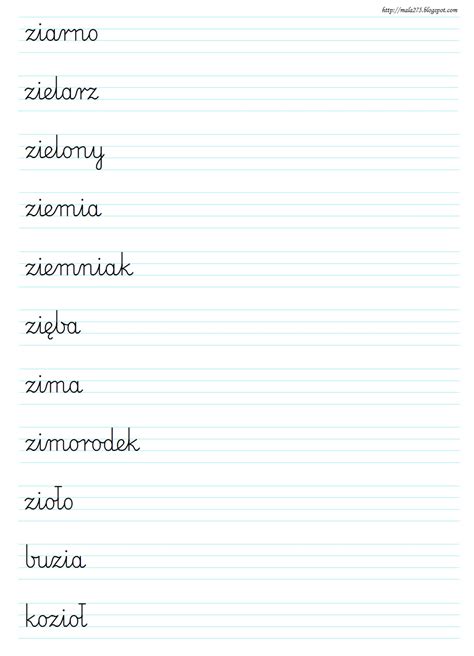 http://mala275.blogspot.com
ziarno
zielarz
zielony
ziemia
ziemniak
zięba
zima
zimorodek
zioło
buzia
kozioł